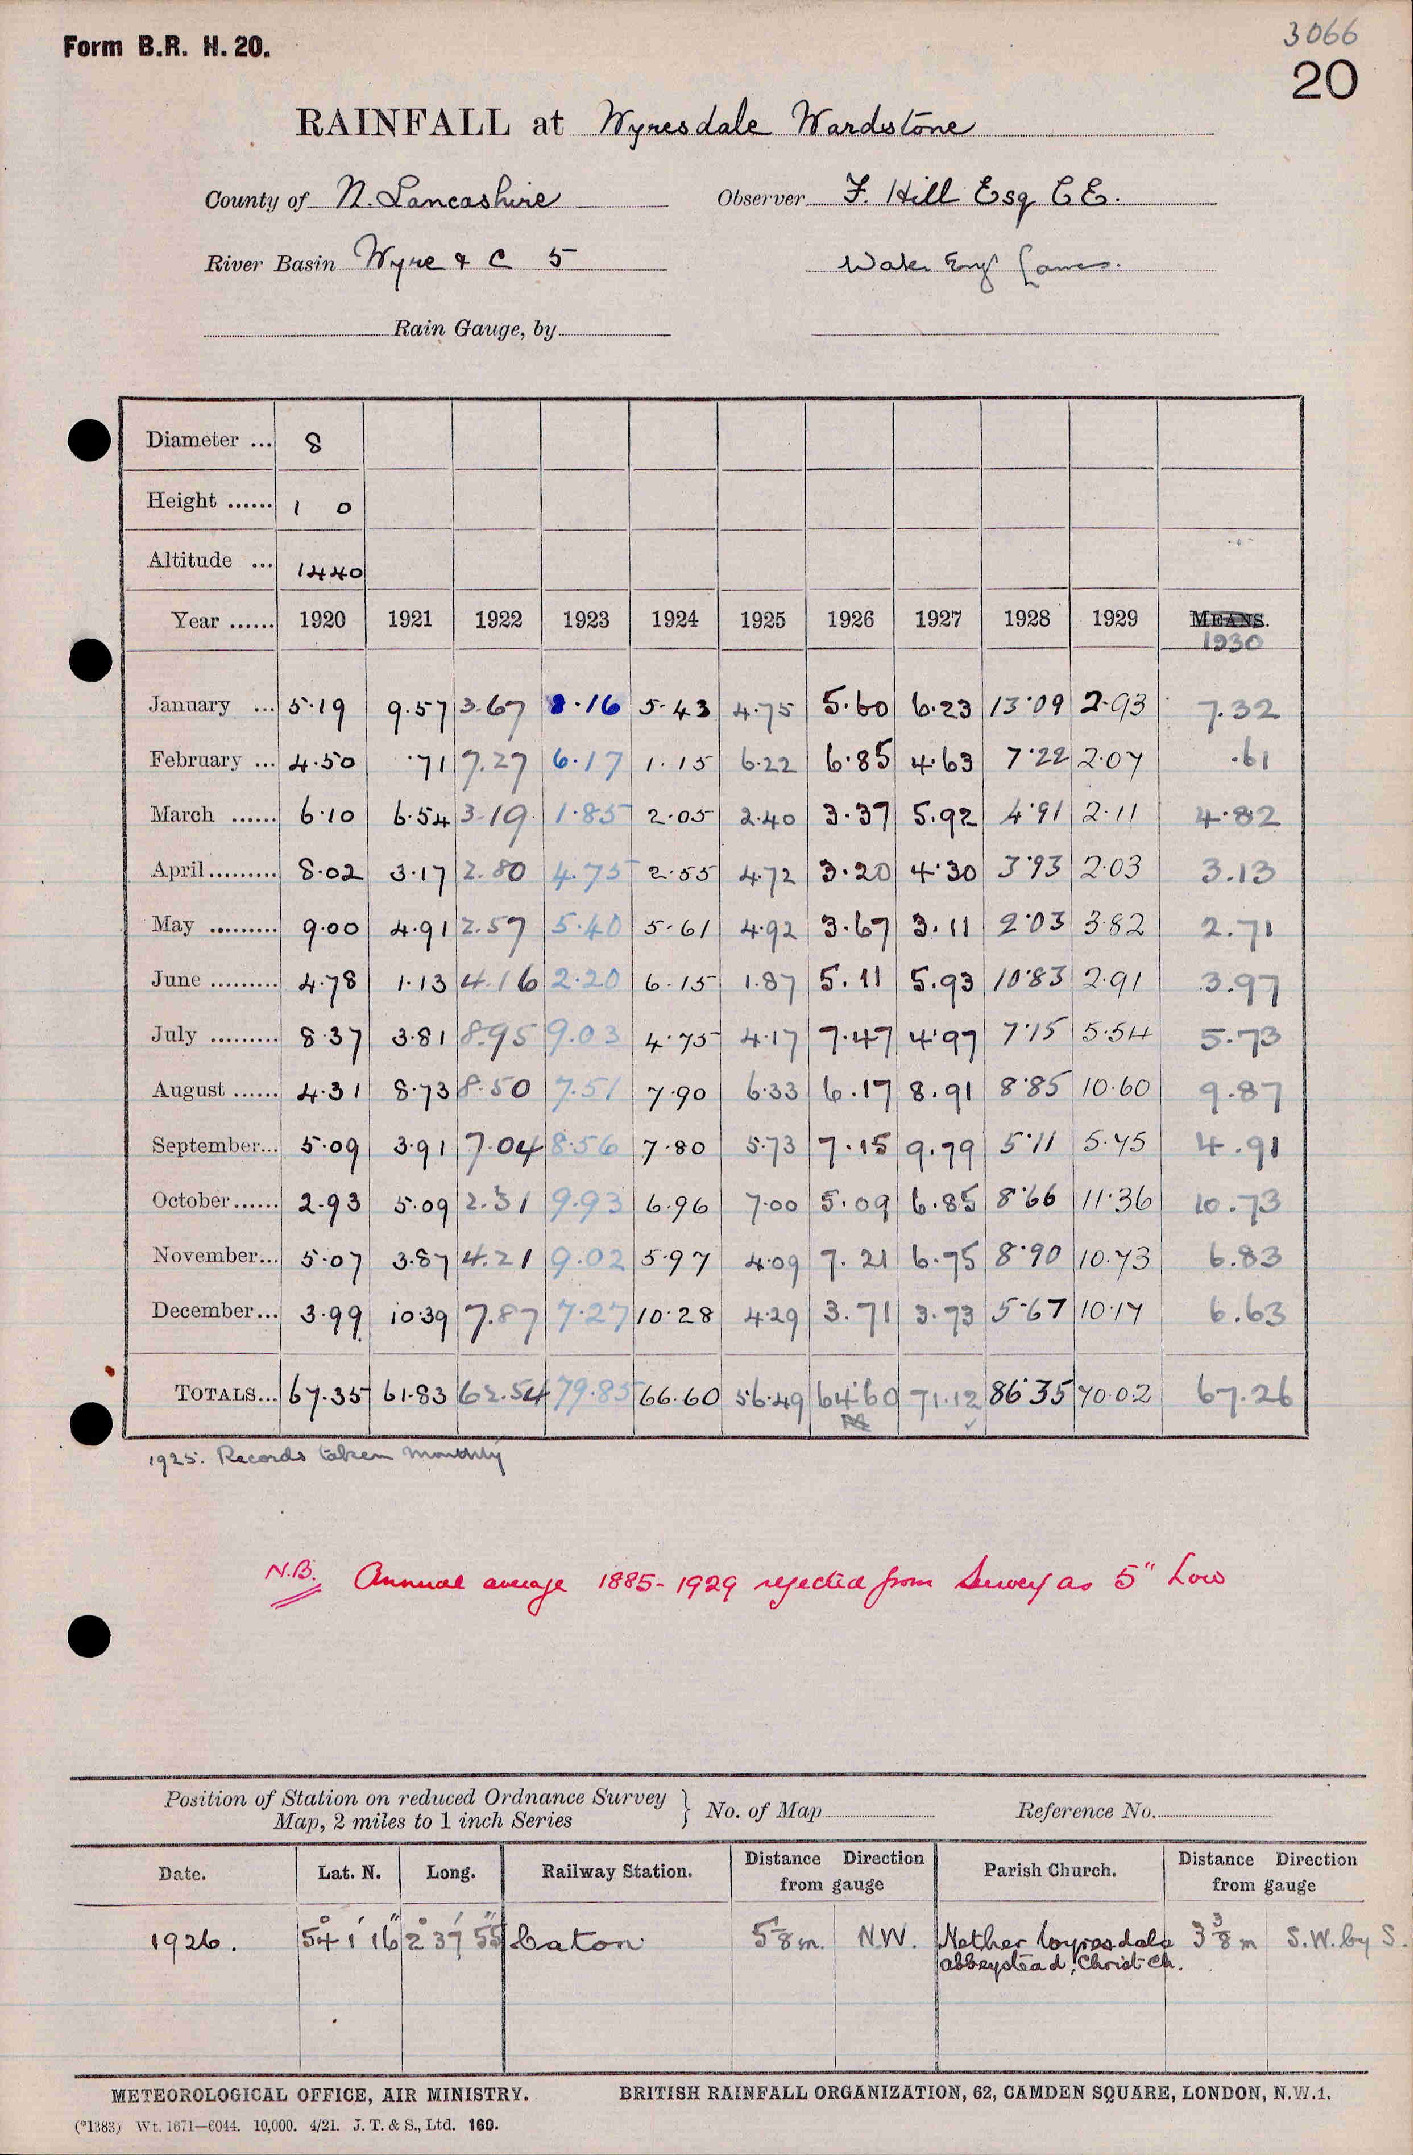 3066
Form B.R. H. 20.
20
RAINFALL at Wyresdale Wardstone
County of N. Lancashire Observer F. Hill Esq C.E.
River Basin Wyre & C 5 Water Eng Lancs.
Rain Gauge, by
Diameter ... 8
Height ...... 1 0
Altitude ... 1440
Year ...... 1920 1921 1922 1923 1924 1925 1926 1927 1928 1929 MEANS.
1930
January ... 5.19 9.57 3.67 8.16 5.43 4.75 5.60 6.23 13.09 2.93 7.32
February ... 4.50 .71 7.27 6.17 1.15 6.22 6.85 4.63 7.22 2.07 .61
March ...... 6.10 6.54 3.19 1.85 2.05 2.40 3.37 5.92 4.91 2.11 4.82
April......... 8.02 3.17 2.80 4.75 2.55 4.72 3.20 4.30 3.93 2.03 3.13
May ......... 9.00 4.91 2.57 5.40 5.61 4.92 3.67 3.11 2.03 3.82 2.71
June ......... 4.78 1.13 4.16 2.20 6.15 1.87 5.11 5.93 10.83 2.91 3.97
July ......... 8.37 3.81 8.95 9.03 4.75 4.17 7.47 4.97 7.15 5.54 5.73
August ...... 4.31 8.73 8.50 7.51 7.90 6.33 6.17 8.91 8.85 10.60 9.87
September... 5.09 3.91 7.04 8.56 7.80 5.73 7.15 9.79 5.11 5.75 4.91
October...... 2.93 5.09 2.31 9.93 6.96 7.00 5.09 6.85 8.66 11.36 10.73
November... 5.07 3.87 4.21 9.02 5.97 4.09 7.21 6.75 8.90 10.73 6.83
December... 3.99 10.39 7.87 7.27 10.28 4.29 3.71 3.73 5.67 10.17 6.63
TOTALS... 67.35 61.83 62.54 79.85 66.60 56.49 64.60 71.12 86.35 70.02 67.26
1925. Records taken monthly
N.B. Annual average 1885-1929 rejected from Survey as 5" Low
Position of Station on reduced Ordnance Survey
Map, 2 miles to 1 inch Series } No. of Map Reference No.
Date. Lat. N. Long. Railway Station. Distance Direction from gauge Parish Church. Distance Direction from gauge
1926. 54° 1' 16" 2° 37' 55" Caton 5 5/8 m. N.W. Nether Wyresdale 3 3/8 m S.W. by S.
Abbeystead, Christ Ch.
METEOROLOGICAL OFFICE, AIR MINISTRY. BRITISH RAINFALL ORGANIZATION, 62, CAMDEN SQUARE, LONDON, N.W.1.
(*1383) Wt. 1671—6044. 10,000. 4/21. J. T. & S., Ltd. 160.